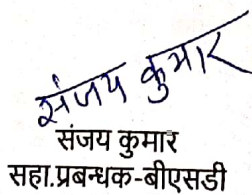 संजय कुमार
संजय कुमार
सहा.प्रबन्धक-बीएसडी